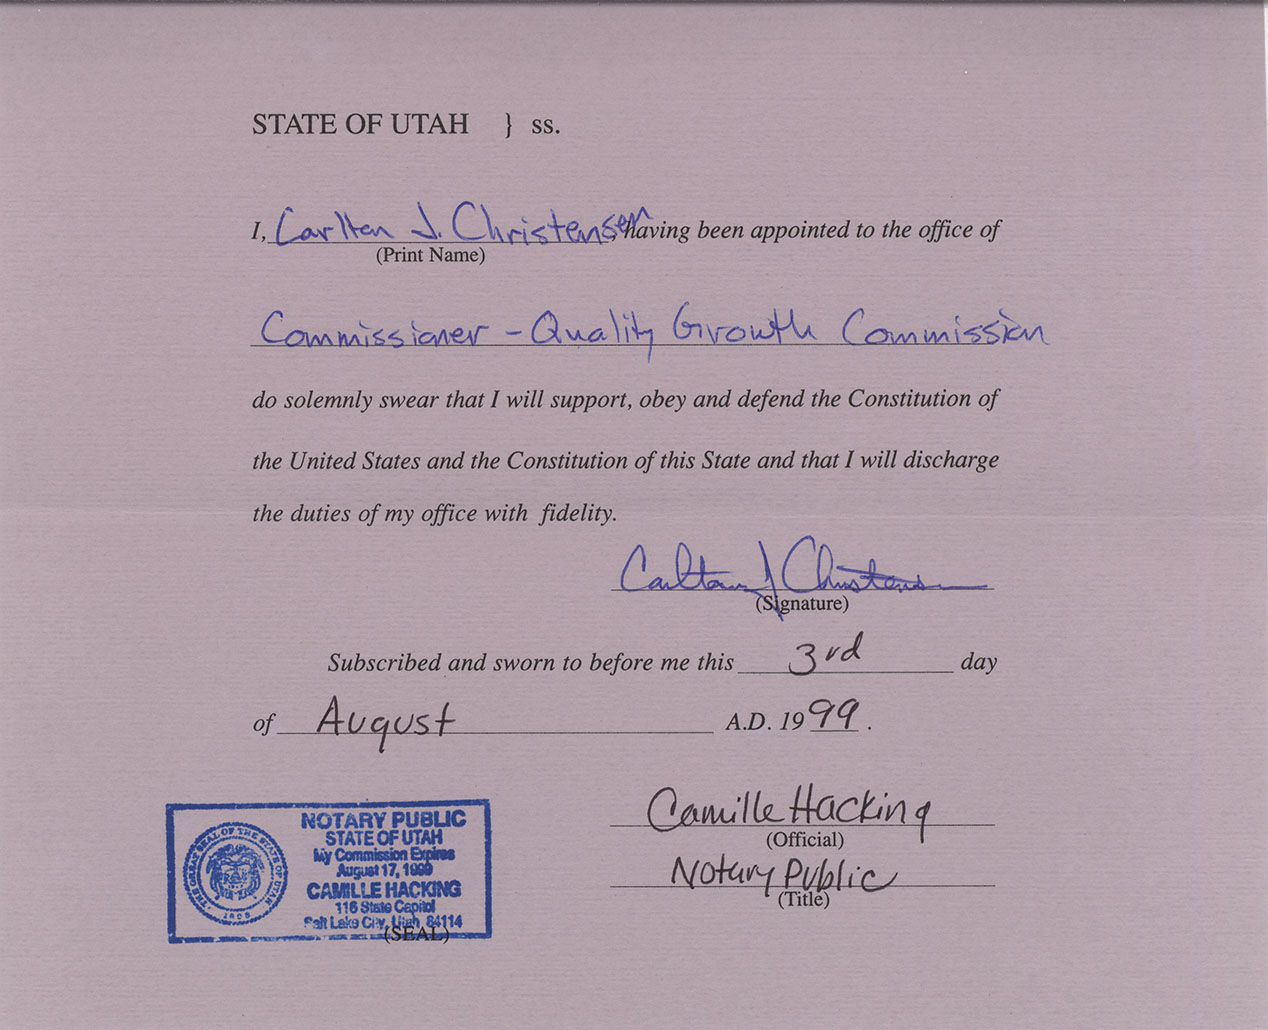 STATE OF UTAH } ss.
I, Carlton J. Christensen, having been appointed to the office of
(Print Name)
Commissioner - Quality Growth Commission
do solemnly swear that I will support, obey and defend the Constitution of
the United States and the Constitution of this State and that I will discharge
the duties of my office with fidelity.
Carlton J Christensen
(Signature)
Subscribed and sworn to before me this 3rd day
of August A.D. 1999.
Camille Hacking
(Official)
Notary Public
(Title)
NOTARY PUBLIC
STATE OF UTAH
My Commission Expires
August 17, 1999
CAMILLE HACKING
116 State Capitol
Salt Lake City, Utah 84114
(SEAL)
THE GREAT SEAL OF THE STATE OF UTAH
1896